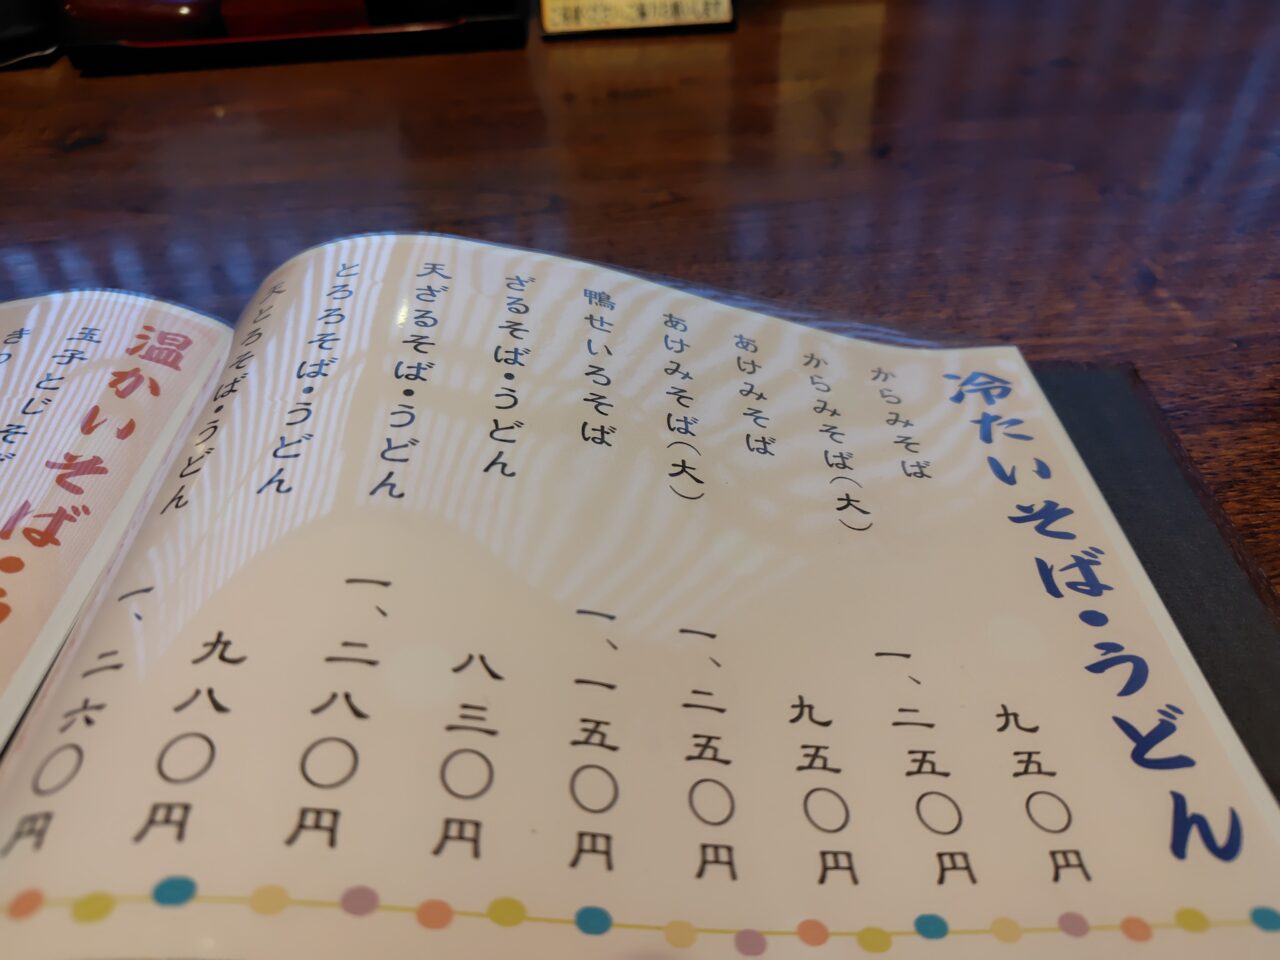 冷たいそば・うどん
からみそば 九五〇円
からみそば(大) 一、二五〇円
あけみそば 九五〇円
あけみそば(大) 一、二五〇円
鴨せいろそば 一、一五〇円
ざるそば・うどん 八三〇円
天ざるそば・うどん 一、二八〇円
とろろそば・うどん 九八〇円
天とろそば・うどん 一、二六〇円
温かいそば・う
玉子とじそば